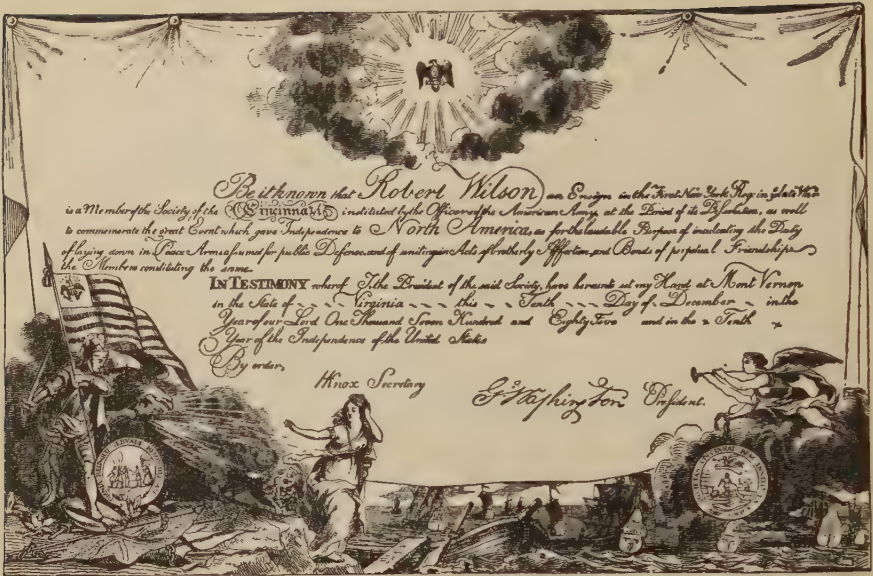 Be it known that Robert Wilson an Ensign in the First New York Reg. in ye late War
is a Member of the Society of the Cincinnati instituted by the Officers of the American Army, at the Period of its Dissolution, as well
to commemorate the great Event which gave Independence to North America, as for the laudable Purpose of inculcating the Duty
of laying down in Peace Arms assumed for public Defence, and of uniting in Acts of brotherly Affection, and Bonds of perpetual Friendship
the Members constituting the same.
IN TESTIMONY whereof I, the President of the said Society, have hereunto set my Hand at Mont Vernon
in the State of Virginia this Tenth Day of December in the
Year of our Lord One Thousand Seven Hundred and Eighty Five and in the Tenth
Year of the Independence of the United States
By order,
HKnox Secretary
Go Washington President.